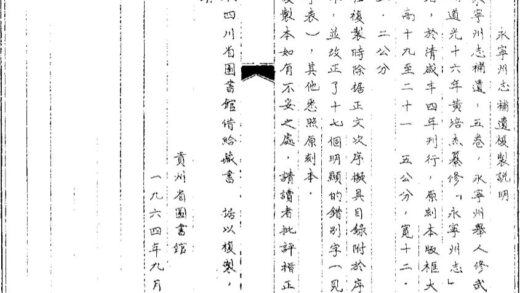 永寧州志補遺複製說明
永寧州志補遺,五卷,永寧州舉人修武
道光十六年黃培杰纂修「永寧州志」
,於清咸丰四年刊行,原刻本版框大
高十九至二十一.五公分,寬十二.
.二公分
複製時除據正文次序擬具目錄附於序
,並改正了十七個明顯的錯別字(見
字表),其他悉照原刻本。
複製本如有不妥之處,請讀者批評指正
四川省圖書館借給藏書,据以複製,
貴州省圖書館
一九六四年九月